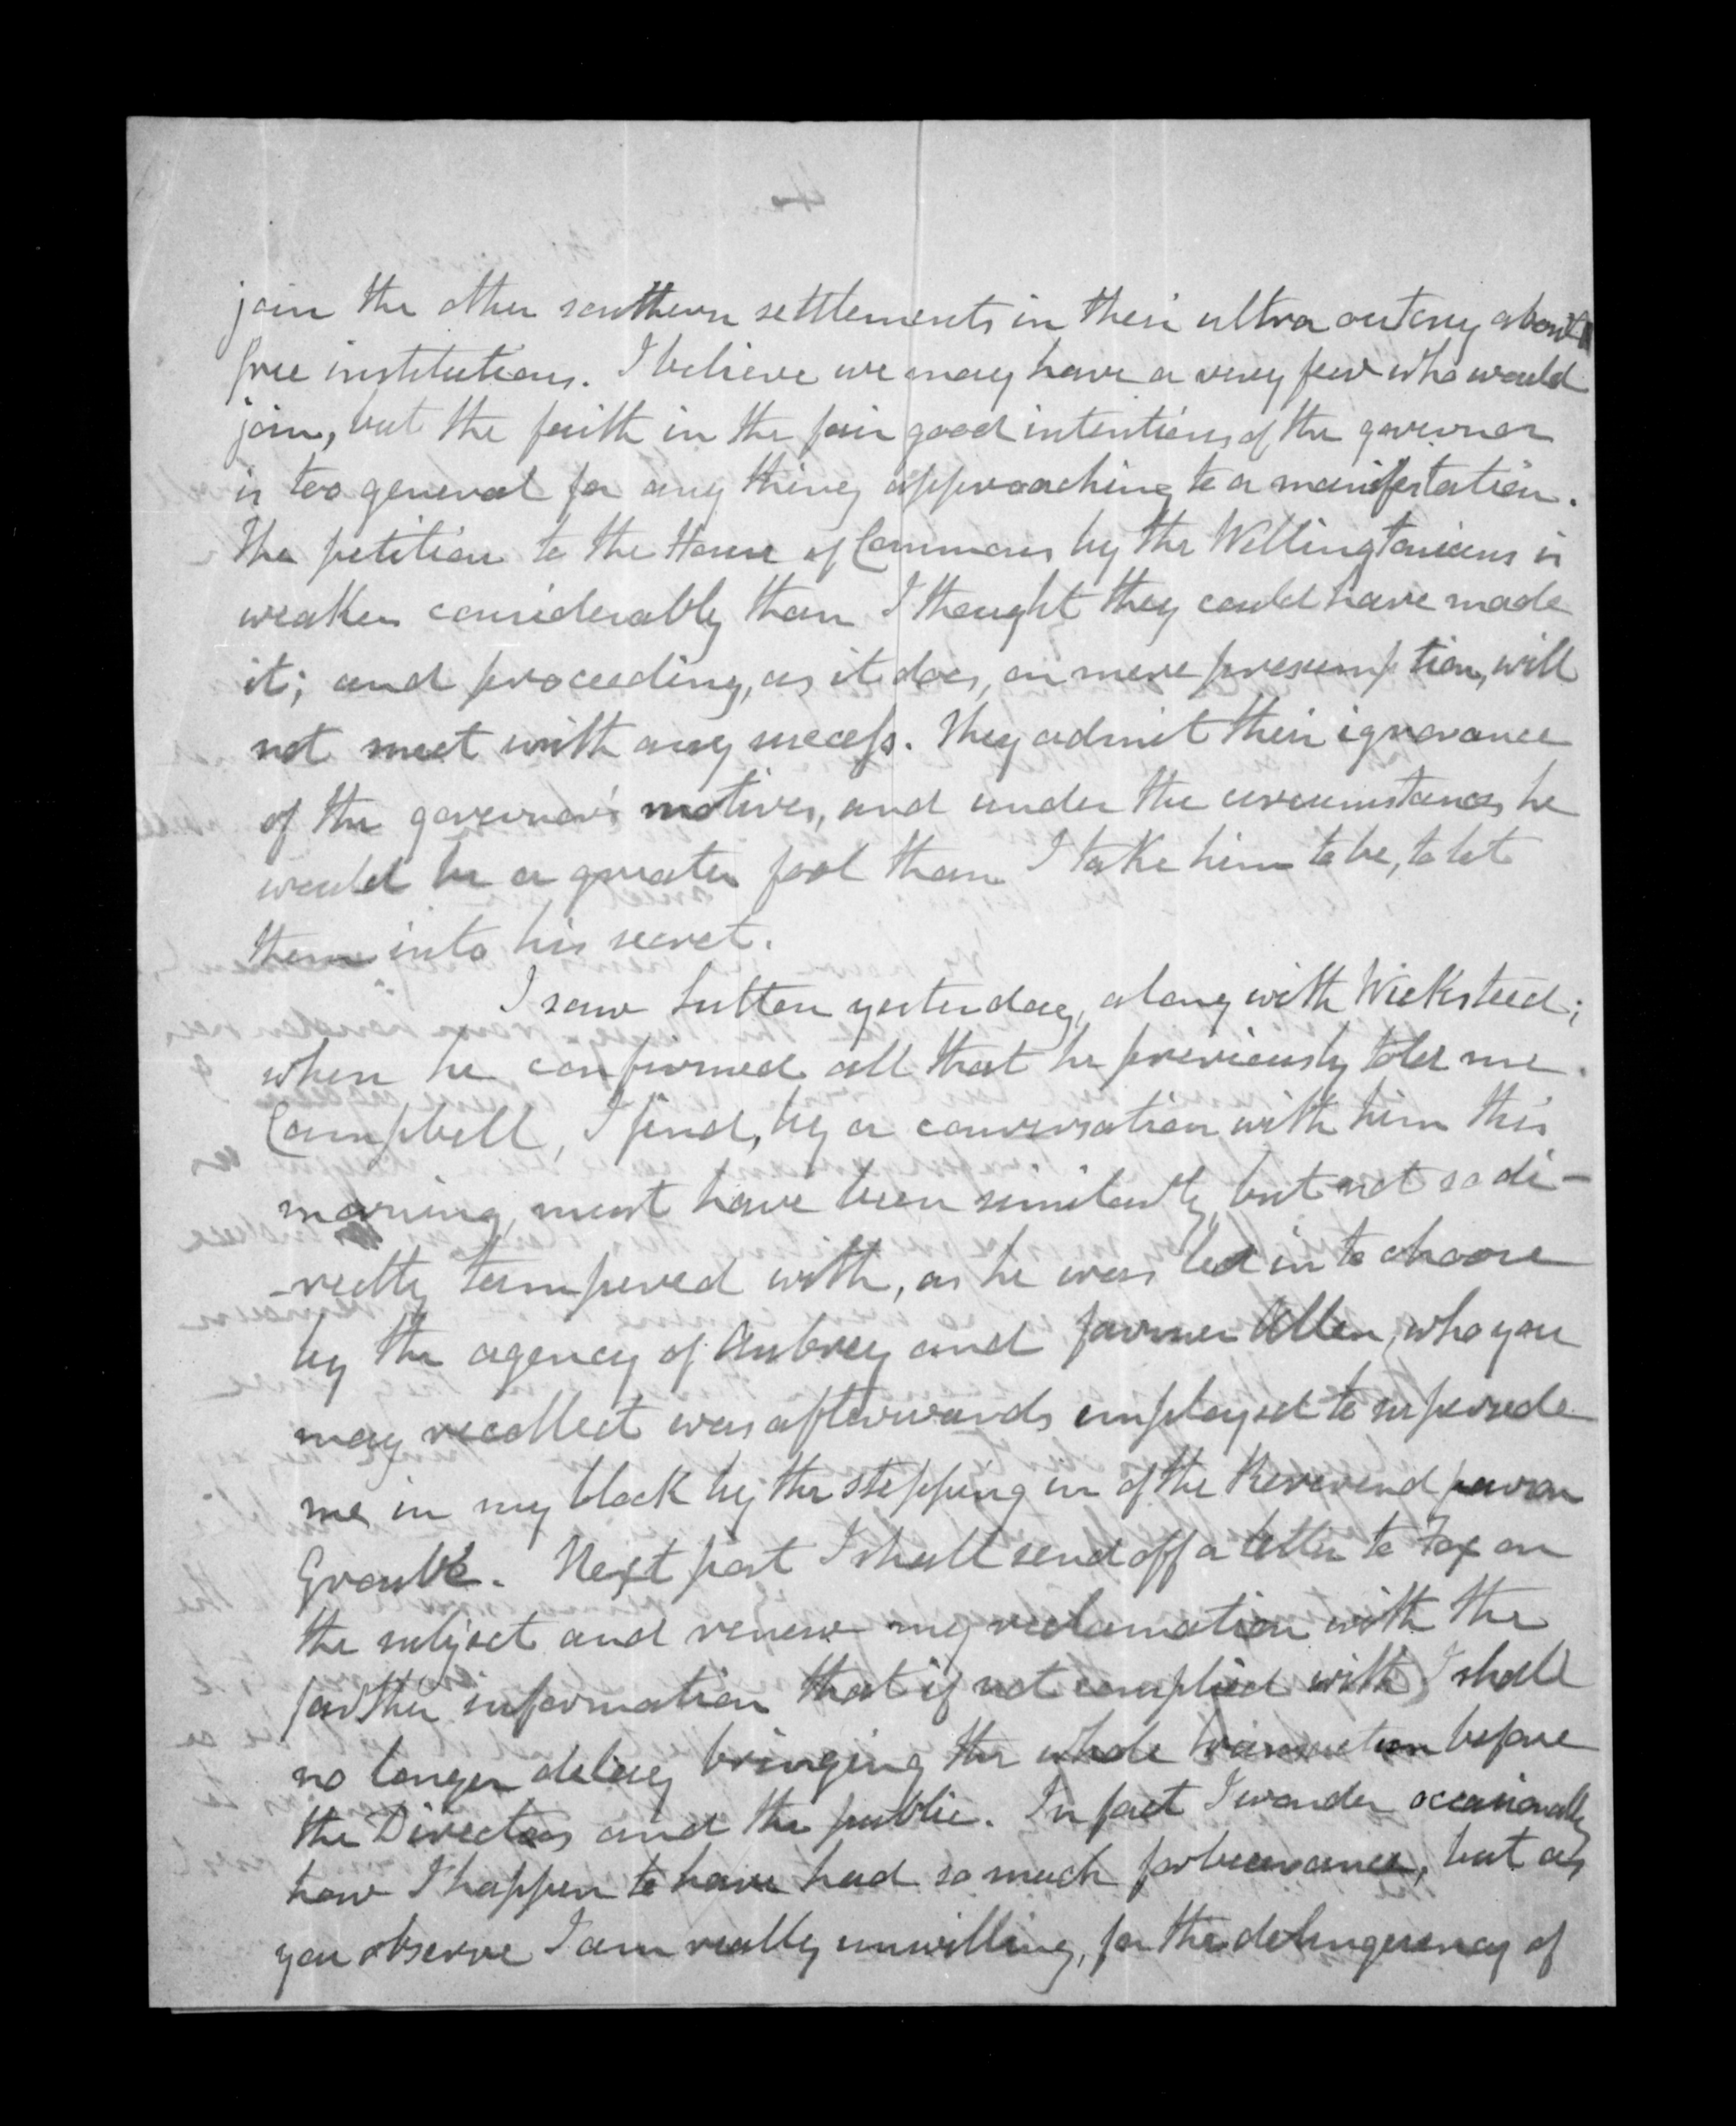 join the other southern settlements in their ultra outcry about
free institutions. I believe we may have a very few who would
join, but the faith in the fair good intentions of the governor
is too general for any thing approaching to a manifestation.
The petition to the House of Commons by the Wellingtonians is
weaker considerably than I thought they could have made
it; and proceeding, as it does, on mere presumption, will
not meet with any success. They admit their ignorance
of the governor's motives, and under the circumstances he
would be a greater fool than I take him to be, to let
them into his secret.
I saw Sutton yesterday, along with Wicksteed;
when he confirmed all that he previously told me.
Campbell, I find, by a conversation with him this
morning, must have been similarly but not so di-
-rectly tampered with, as he was led in to choose
by the agency of Aubrey and farmer Allen, who you
may recollect was afterwards employed to supersede
me in my block by the stepping in of the Reverend parson
Next post I shall send off a letter to Fox on
the subject and renew my reclamation with the
farther information that if not complied with I shall
no longer delay bringing the whole transaction before
the Directors and the public. In fact I wonder occasionally
how I happen to have had so much forbearance, but as
you observe I am really unwilling, for the delinquency of